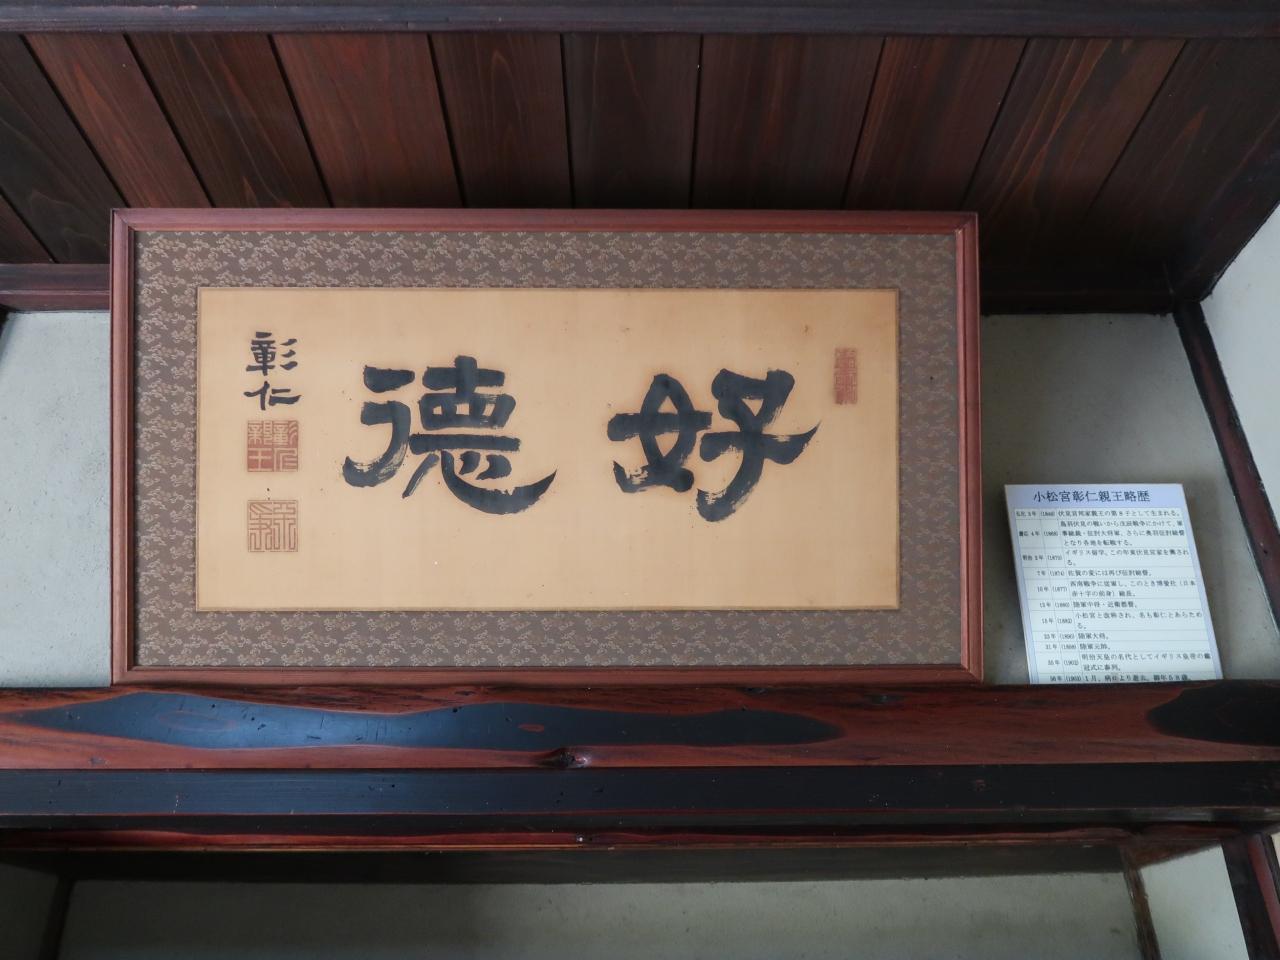 好德
彰仁
彰仁
親王
小松宮彰仁親王略歴
弘化 3年 (1846) 伏見宮邦家親王の第8子として生まれる。
慶応 4年 (1868) 鳥羽伏見の戦いから戊辰戦争にかけて、軍
事総裁・征討大将軍、さらに奥羽征討総督
となり各地を転戦する。
明治 3年 (1870) イギリス留学。この年東伏見宮家を興され
る。
7年 (1874) 佐賀の変には再び征討総督。
10年 (1877) 西南戦争に従軍し、このとき博愛社（日本
赤十字の前身）総長。
13年 (1880) 陸軍中将・近衛都督。
15年 (1882) 小松宮と改称され、名も彰仁とあらため
る。
23年 (1890) 陸軍大将。
31年 (1898) 陸軍元帥。
35年 (1902) 明治天皇の名代としてイギリス皇帝の戴
冠式に参列。
36年 (1903) 1月、病気より逝去。御年58歳。